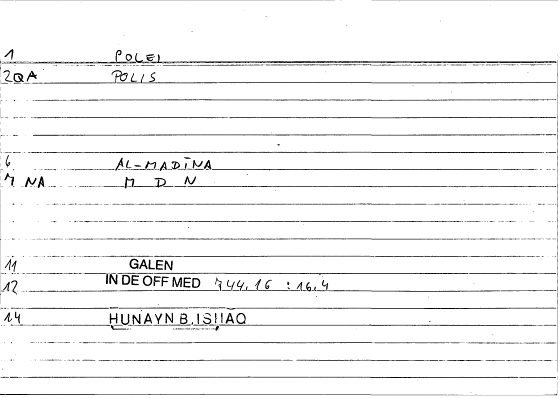 1 POLEI
2QA POLIS
6 AL-MADĪNA
7 NA M D N
11 GALEN
12 IN DE OFF MED 744,16 : 16,4
14 HUNAYN B.ISHAQ